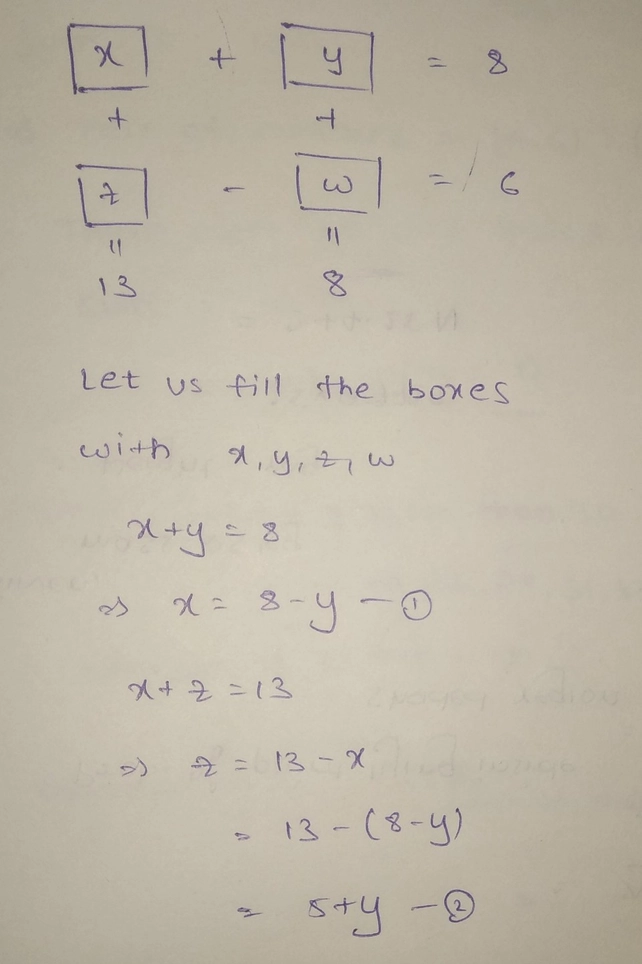 x + y = 8
+ +
z - w = 6
= =
13 8
Let us fill the boxes
with x, y, z, w
x+y = 8
⇒ x = 8-y - ①
x+z = 13
⇒ z = 13-x
= 13-(8-y)
= 5+y - ②